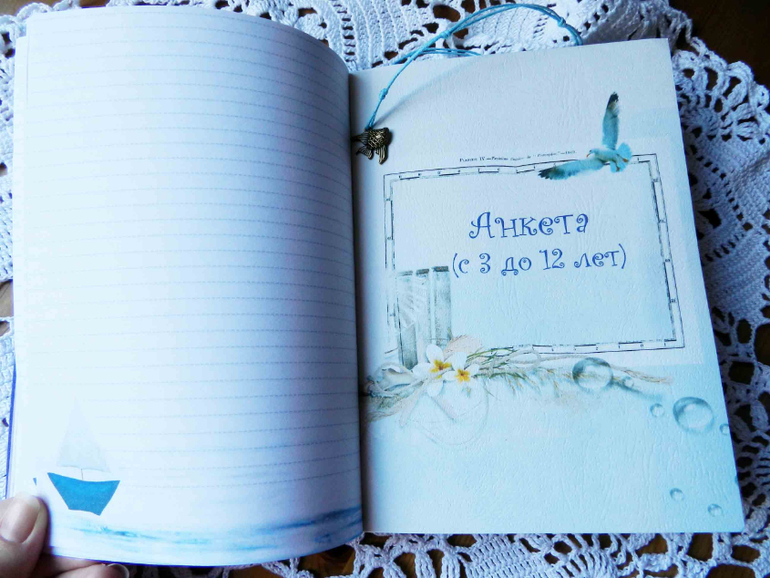 Анкета
(с 3 до 12 лет)